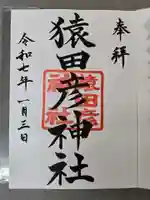 奉拝
猿田彦神社
令和七年一月三日